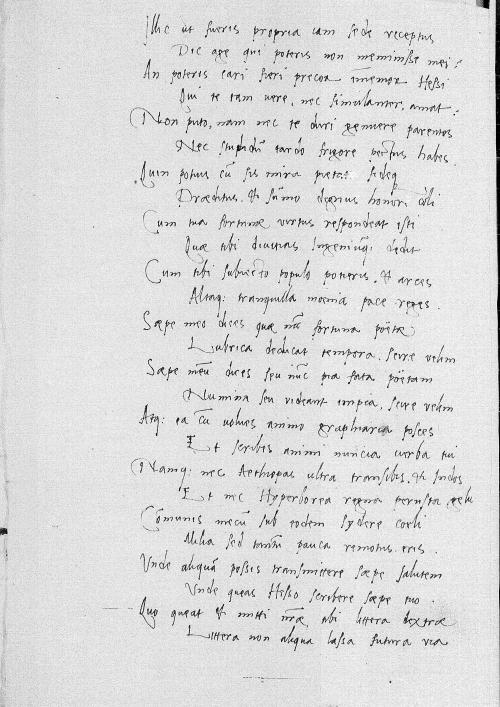 Illic ut fueris propria iam sede receptus
Dic age qui poteris non meminisse mei?
An poteris cari fieri precor īmemor Hessi
Qui te tam uere, nec simulanter, amat?
Non puto, nam nec te duri genuere parentes
Nec stupidū tardo frigore pectus habes.
Quin potius cū sis mira pietate fideq
Præditus, et sūmo dignus honore
Cum tua fortunæ virtus respondeat isti
Quæ tibi diuitias Ingeniūq; dedit
Cum tibi subiecto populo potieris, et arces
Altaq; tranquilla mœnia pace reges.
Sæpe meo dices quæ nūc fortuna pöetæ
Lubrica deducat tempora, scire velim
Sæpe meū dices seu nūc pia fata pöetam
Numina seu videant impia, scire velim
Atq; ea cū uolues animo graphiaria posces
Et scribes animi nuncia uerba tui
Namq; nec Aethiopas ultra transibis, et Indos
Et nec Hyperborea regna perusta gelu
Cōmunis mecū sub eodem sydere coeli
Milia sed tantū pauca remotus eris.
Vnde aliquā possis transmittere sæpe salutem
Vnde queas Hesso scribere sæpe tuo.
Quo queat et mitti nr̄æ tibi littera dextræ
Littera non aliqua lassa futura via